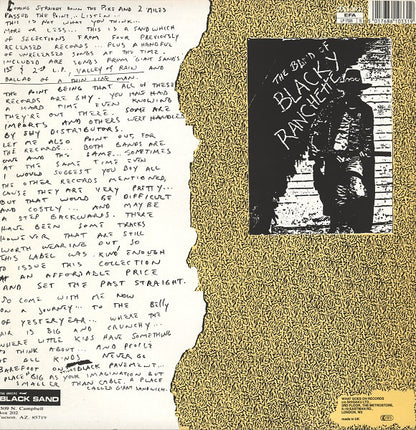 COMING STRAIGHT DOWN THE PIKE AND 2 MILES
PAST THE POINT... LISTEN...
THIS IS NOT WHAT YOU THINK...
MORE OR LESS... THIS IS A SANDWICH
OF SELECTIONS FROM FOUR PREVIOUSLY
RELEASED RECORDS... PLUS A HANDFUL
OF UNRELEASED SONGS AT THE TIME...
INCLUDED ARE SONGS FROM 'GIANT SAND'S
1st & 2nd L.P., VALLEY OF RAIN AND
BALLAD OF A THIN LINE MAN.
THE POINT BEING THAT ALL OF THESE
RECORDS ARE SHY. YOU HAVE HAD
A HARD TIME EVEN KNOWING
THEY'RE OUT THERE. SOME ARE
IMPORTS AND OTHERS WERE HANDLED
BY SHY DISTRIBUTORS.
LET ME ALSO POINT OUT, FOR
THE RECORD... BOTH BANDS ARE
ONE AND THE SAME... SOMETIMES
AT THE SAME TIME EVEN
I WOULD SUGGEST YOU BUY ALL
THE OTHER RECORDS MENTIONED,
CAUSE THEY ARE VERY PRETTY...
BUT THAT WOULD BE DIFFICULT
AND COSTLY... AND MAYBE
A STEP BACKWARDS. THERE
HAVE BEEN SOME TRACKS
HOWEVER THAT ARE STILL
WORTH WEARING OUT, SO
THIS LABEL WAS KIND ENOUGH
TO ISSUE THIS COLLECTION
AT AN AFFORDABLE PRICE
AND SET THE PAST STRAIGHT.
SO COME WITH ME NOW
ON A JOURNEY... TO THE BELLY
OF YESTERYEAR... WHERE THE
AIR IS BIG AND CRUNCHY...
WHERE LITTLE KIDS HAVE SOMETHING
TO THINK ABOUT... AND PEOPLE
OF ALL KINDS NEVER GO
BAREFOOT ON PAVEMENT...
PLACE BIG AS YOUR IMAGINATION BUT
SMALLER THAN CABLE. A PLACE
CALLED GIANT SANDWICH.
BLACK SAND
N. Campbell
Box 202
Tucson, AZ. 85719
EFA
THE BEST OF
BLACKY
RANCHETTE
WHAT GOES ON RECORDS
3RD FLOOR, THE METROSTORE,
LONDON, W6
made in UK